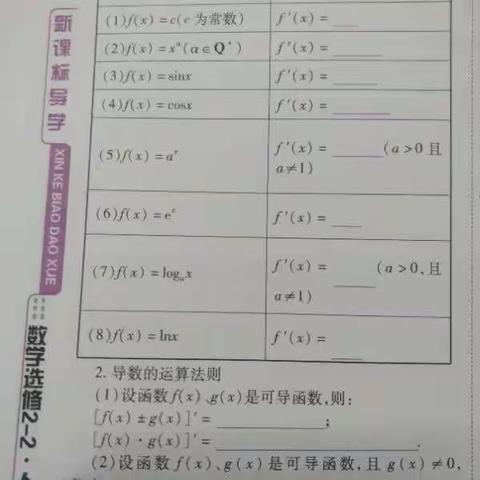 新课标导学
XIN KE BIAO DAO XUE
数学选修2-2·
(1)f(x)=c(c为常数) f′(x)=
(2)f(x)=xᵅ(α∈Q*) f′(x)=
(3)f(x)=sinx f′(x)=
(4)f(x)=cosx f′(x)=
(5)f(x)=aˣ f′(x)=______(a>0且
a≠1)
(6)f(x)=eˣ f′(x)=
(7)f(x)=logₐx f′(x)=____(a>0,且
a≠1)
(8)f(x)=lnx f′(x)=
2.导数的运算法则
(1)设函数f(x)、g(x)是可导函数,则:
[f(x)±g(x)]′=____________;
[f(x)·g(x)]′=______________________.
(2)设函数f(x)、g(x)是可导函数,且g(x)≠0,